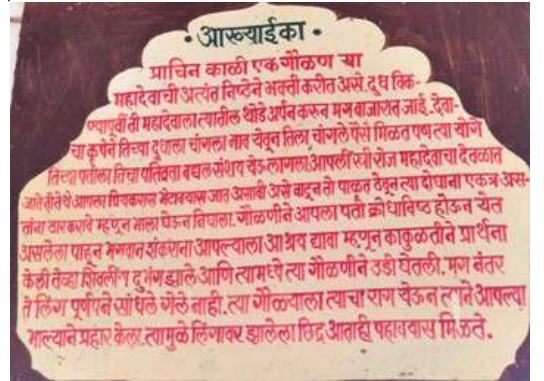 • आख्याईका •
प्राचिन काळी एक गौळण या
महादेवाची अत्यंत निष्ठेने भक्ती करीत असे. दूध विक-
ण्यापूर्वी ती महादेवाला त्यातील थोडे अर्पन करुन मग बाजारात जाई. देवा-
चा कृपेने तिच्या दुधाला चांगला भाव येवून तिला चांगले पैसे मिळत पण त्या योगे
तिच्या पतीला तिचा पतिव्रता बद्यल संशय येऊ-लागला. आपली स्त्री रोज महादेवाचा देवळात
जाते तीतेथे आपला प्रियकरास भेटावयास जात असावी असे वाटून तो पाळत ठेवून त्या दोघाना एकत्र अस-
तांना ठारकरावे म्हणून भाला घेऊन निघाला. गौळणीने आपला पती क्रोधाविष्ठ होऊन येत
असलेला पाहून भगवान शंकराना आपल्याला आश्रय द्यावा म्हणून काकुळतीने प्रार्थना
केली तेव्हा शिवलींग दुभंग झाले आणि त्यामध्ये त्या गौळणीने उडी घेतली. मग नंतर
ते लिंग पूर्णपने सांधले गेले नाही. त्या गौळ्याला त्याचा राग येऊन त्याने आपल्या
भाल्याने प्रहार केला. त्यामुळे लिंगावर झालेला छिद्र आताही पहावयास मिळते.